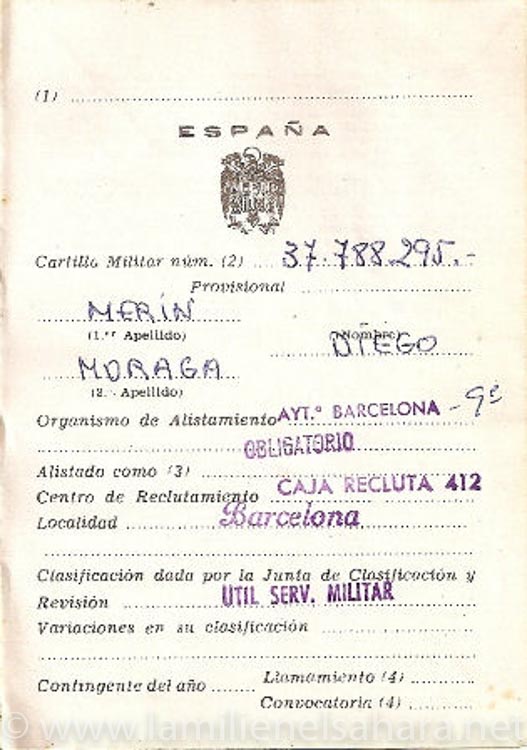 (1)
ESPAÑA
Cartilla Militar núm. (2) 37.788.295.-
Provisional
MERÍN
(1.er Apellido)
DIEGO
(Nombre)
MORAGA
(2.º Apellido)
Organismo de Alistamiento AYT.º BARCELONA -9ª
OBLIGATORIO
Alistado como (3)
Centro de Reclutamiento CAJA RECLUTA 412
Localidad Barcelona
Clasificación dada por la Junta de Clasificación y
Revisión UTIL SERV. MILITAR
Variaciones en su clasificación
Contingente del año Llamamiento (4)
Convocatoria (4)
© www.lamilienelsahara.net